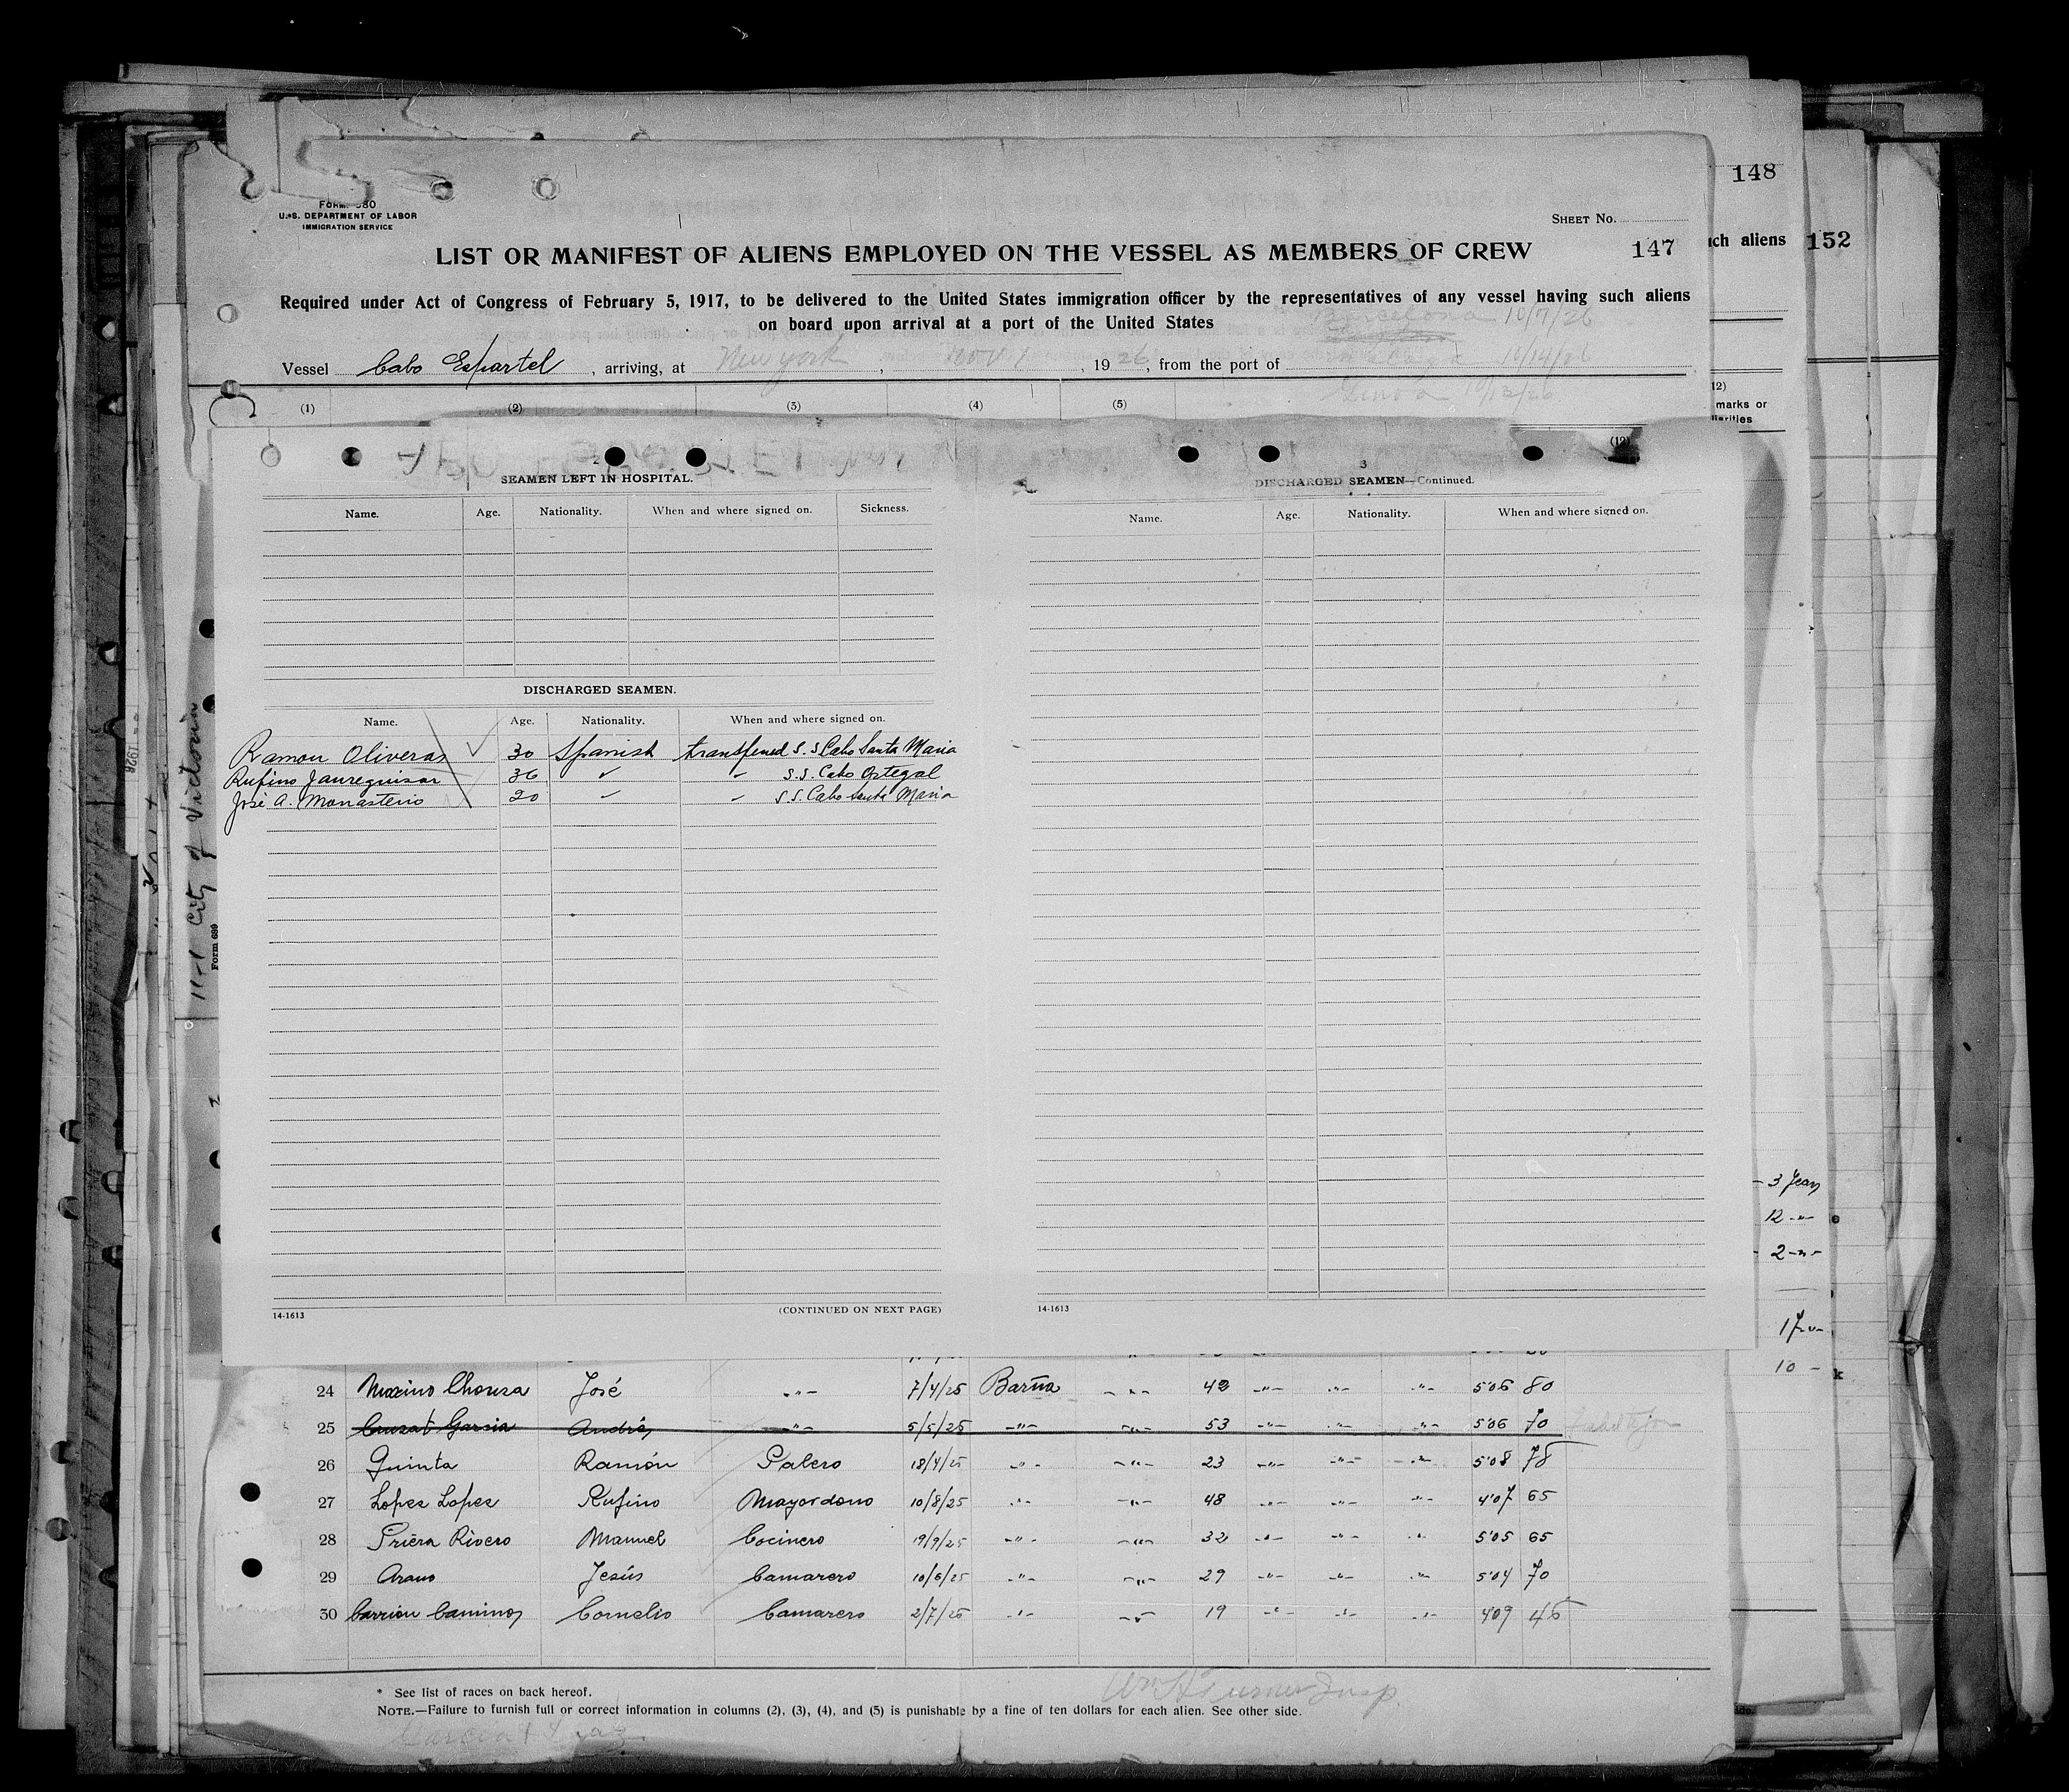 148
FORM 680
U. S. DEPARTMENT OF LABOR
IMMIGRATION SERVICE
SHEET No.
LIST OR MANIFEST OF ALIENS EMPLOYED ON THE VESSEL AS MEMBERS OF CREW
147
ich aliens 152
Required under Act of Congress of February 5, 1917, to be delivered to the United States immigration officer by the representatives of any vessel having such aliens
on board upon arrival at a port of the United States
Barcelona 10/7/26
Vessel Cabo Espartel, arriving, at New York, Nov. 1, 1926, from the port of
Malaga 10/14/26
Genova 10/2/26
(1) (2) (3) (4) (5)
12)
marks or
liarities
(12)
2
SEAMEN LEFT IN HOSPITAL.
Name. Age. Nationality. When and where signed on. Sickness.
DISCHARGED SEAMEN.
Name. Age. Nationality. When and where signed on.
Ramon Oliveras ✓ 30 Spanish transferred S.S Cabo Santa Maria
Rufino Jaureguisar 36 ✓ " S.S. Cabo Ortegal
José A. Monasterio 20 " " S.S. Cabo Santa Maria
14-1613 (CONTINUED ON NEXT PAGE)
3
DISCHARGED SEAMEN—Continued.
Name. Age. Nationality. When and where signed on.
14-1613
11-1 City of Victoria
Form 689
1926
3 Years
12 -"-
2 -"-
17 -"-
10 -
k
24 Marino Chousa José -"- 7/4/25 Barna -"- 42 -"- -"- -"- 5'06 80
25 Cruzat Garcia Andrés -"- 5/5/25 -"- -"- 53 -"- -"- -"- 5'06 70
26 Quinta Ramón Palero 18/4/25 -"- -"- 23 -"- -"- -"- 5'08 78
27 Lopez Lopez Rufino Mayordomo 10/8/25 -"- -"- 48 -"- -"- -"- 4'07 65
28 Priera Rivero Manuel Cocinero 19/9/25 -"- -"- 32 -"- -"- -"- 5'05 65
29 Arano Jesús Camarero 10/6/25 -"- -"- 29 -"- -"- -"- 5'04 70
30 Carrion Caminos Cornelio Camarero 2/7/25 -"- -"- 19 -"- -"- -"- 4'09 45
* See list of races on back hereof.
Wm H Turner Insp.
NOTE.—Failure to furnish full or correct information in columns (2), (3), (4), and (5) is punishable by a fine of ten dollars for each alien. See other side.
Garcia & Diaz